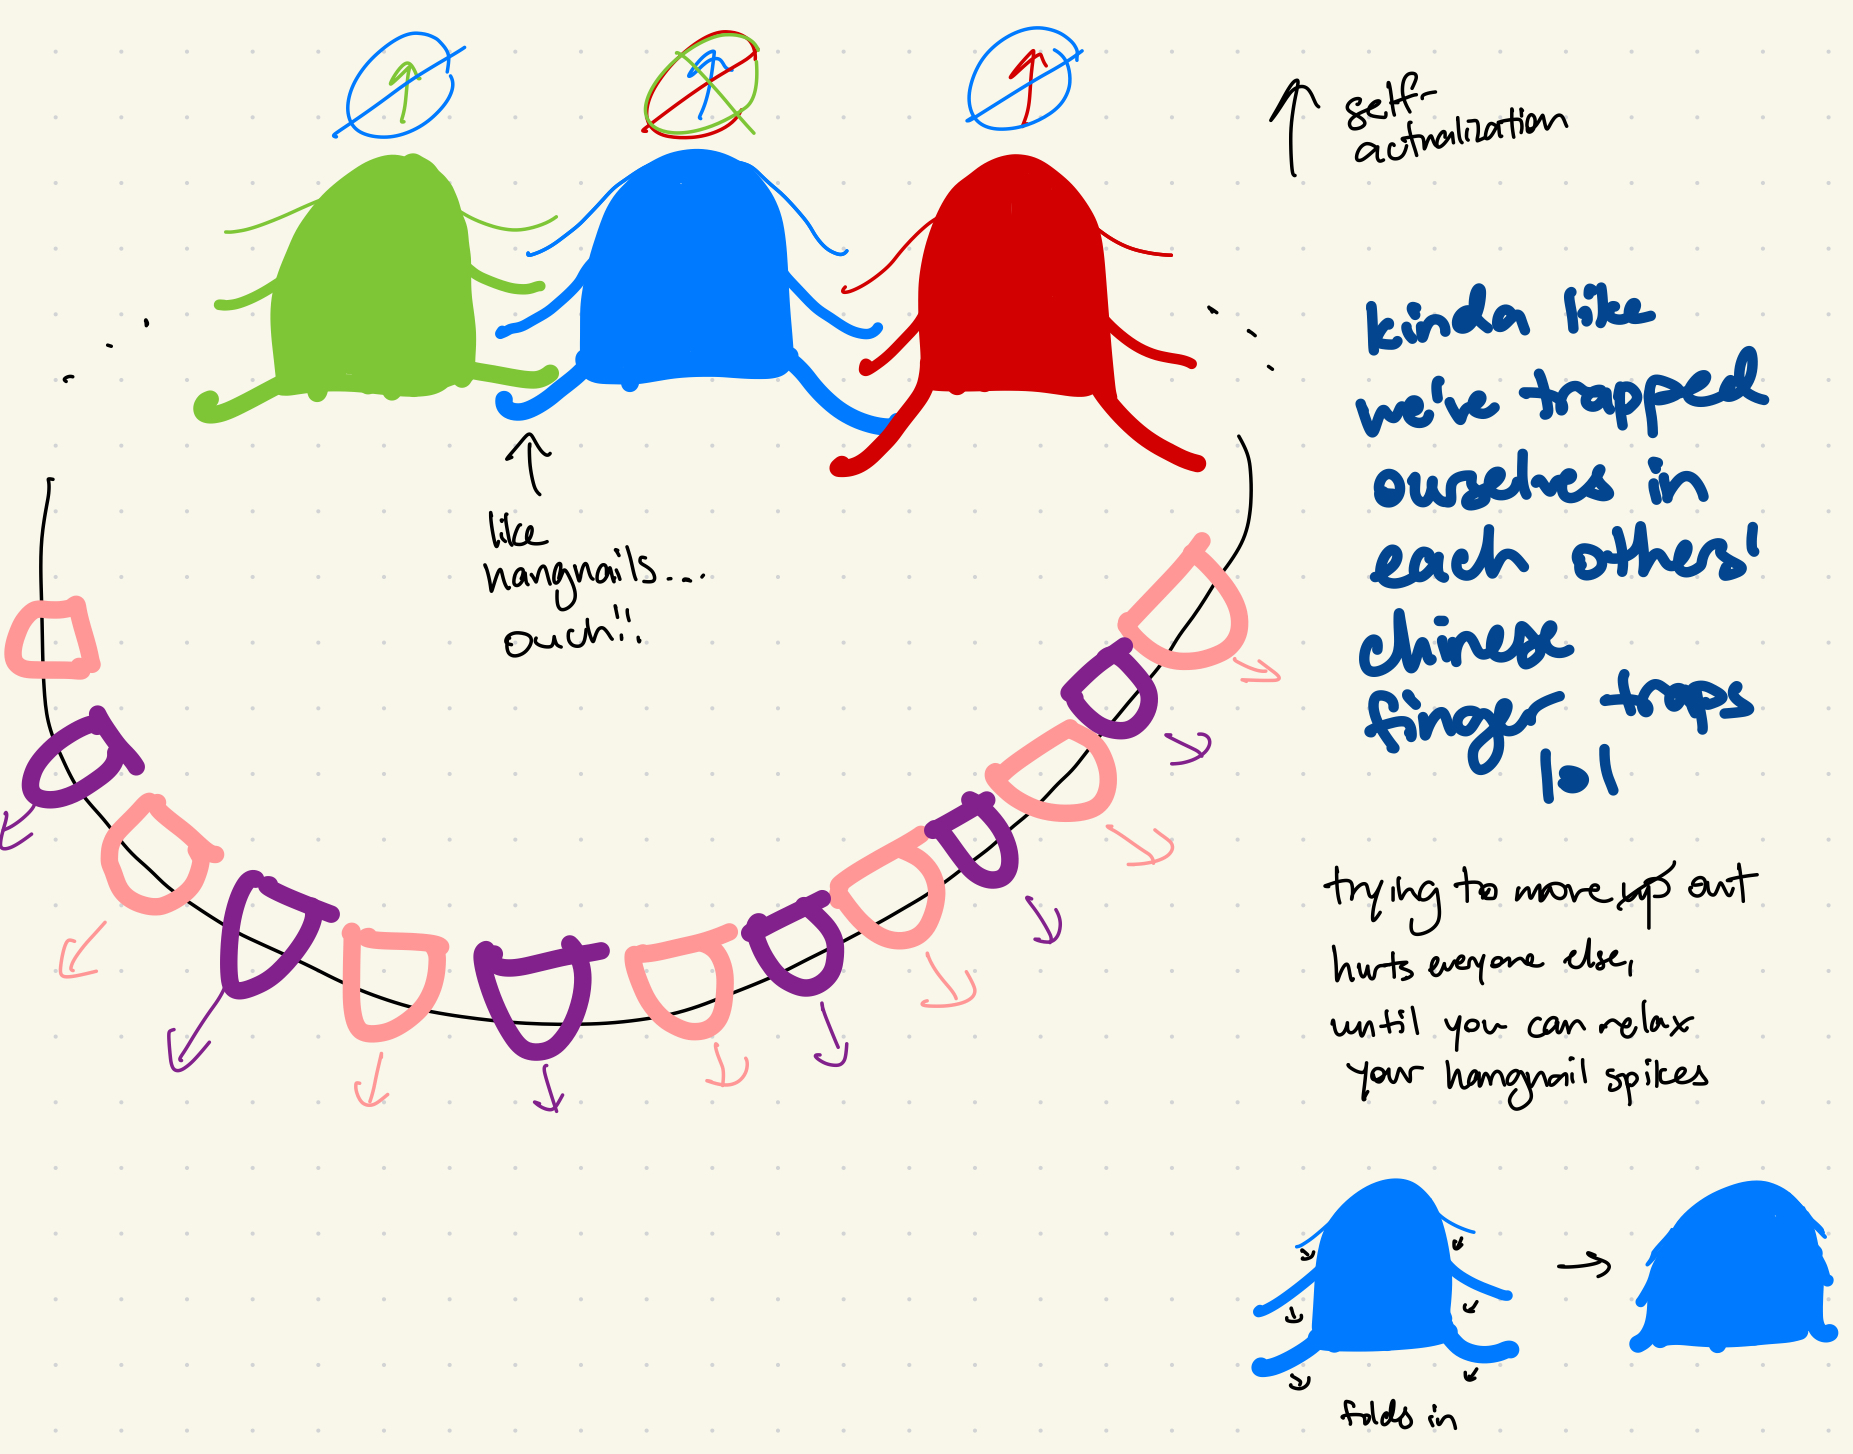 self-
actualization
like
hangnails...
ouch!!
kinda like
we've trapped
ourselves in
each others'
chinese
finger traps
lol
trying to move up out
hurts everyone else,
until you can relax
your hangnail spikes
folds in